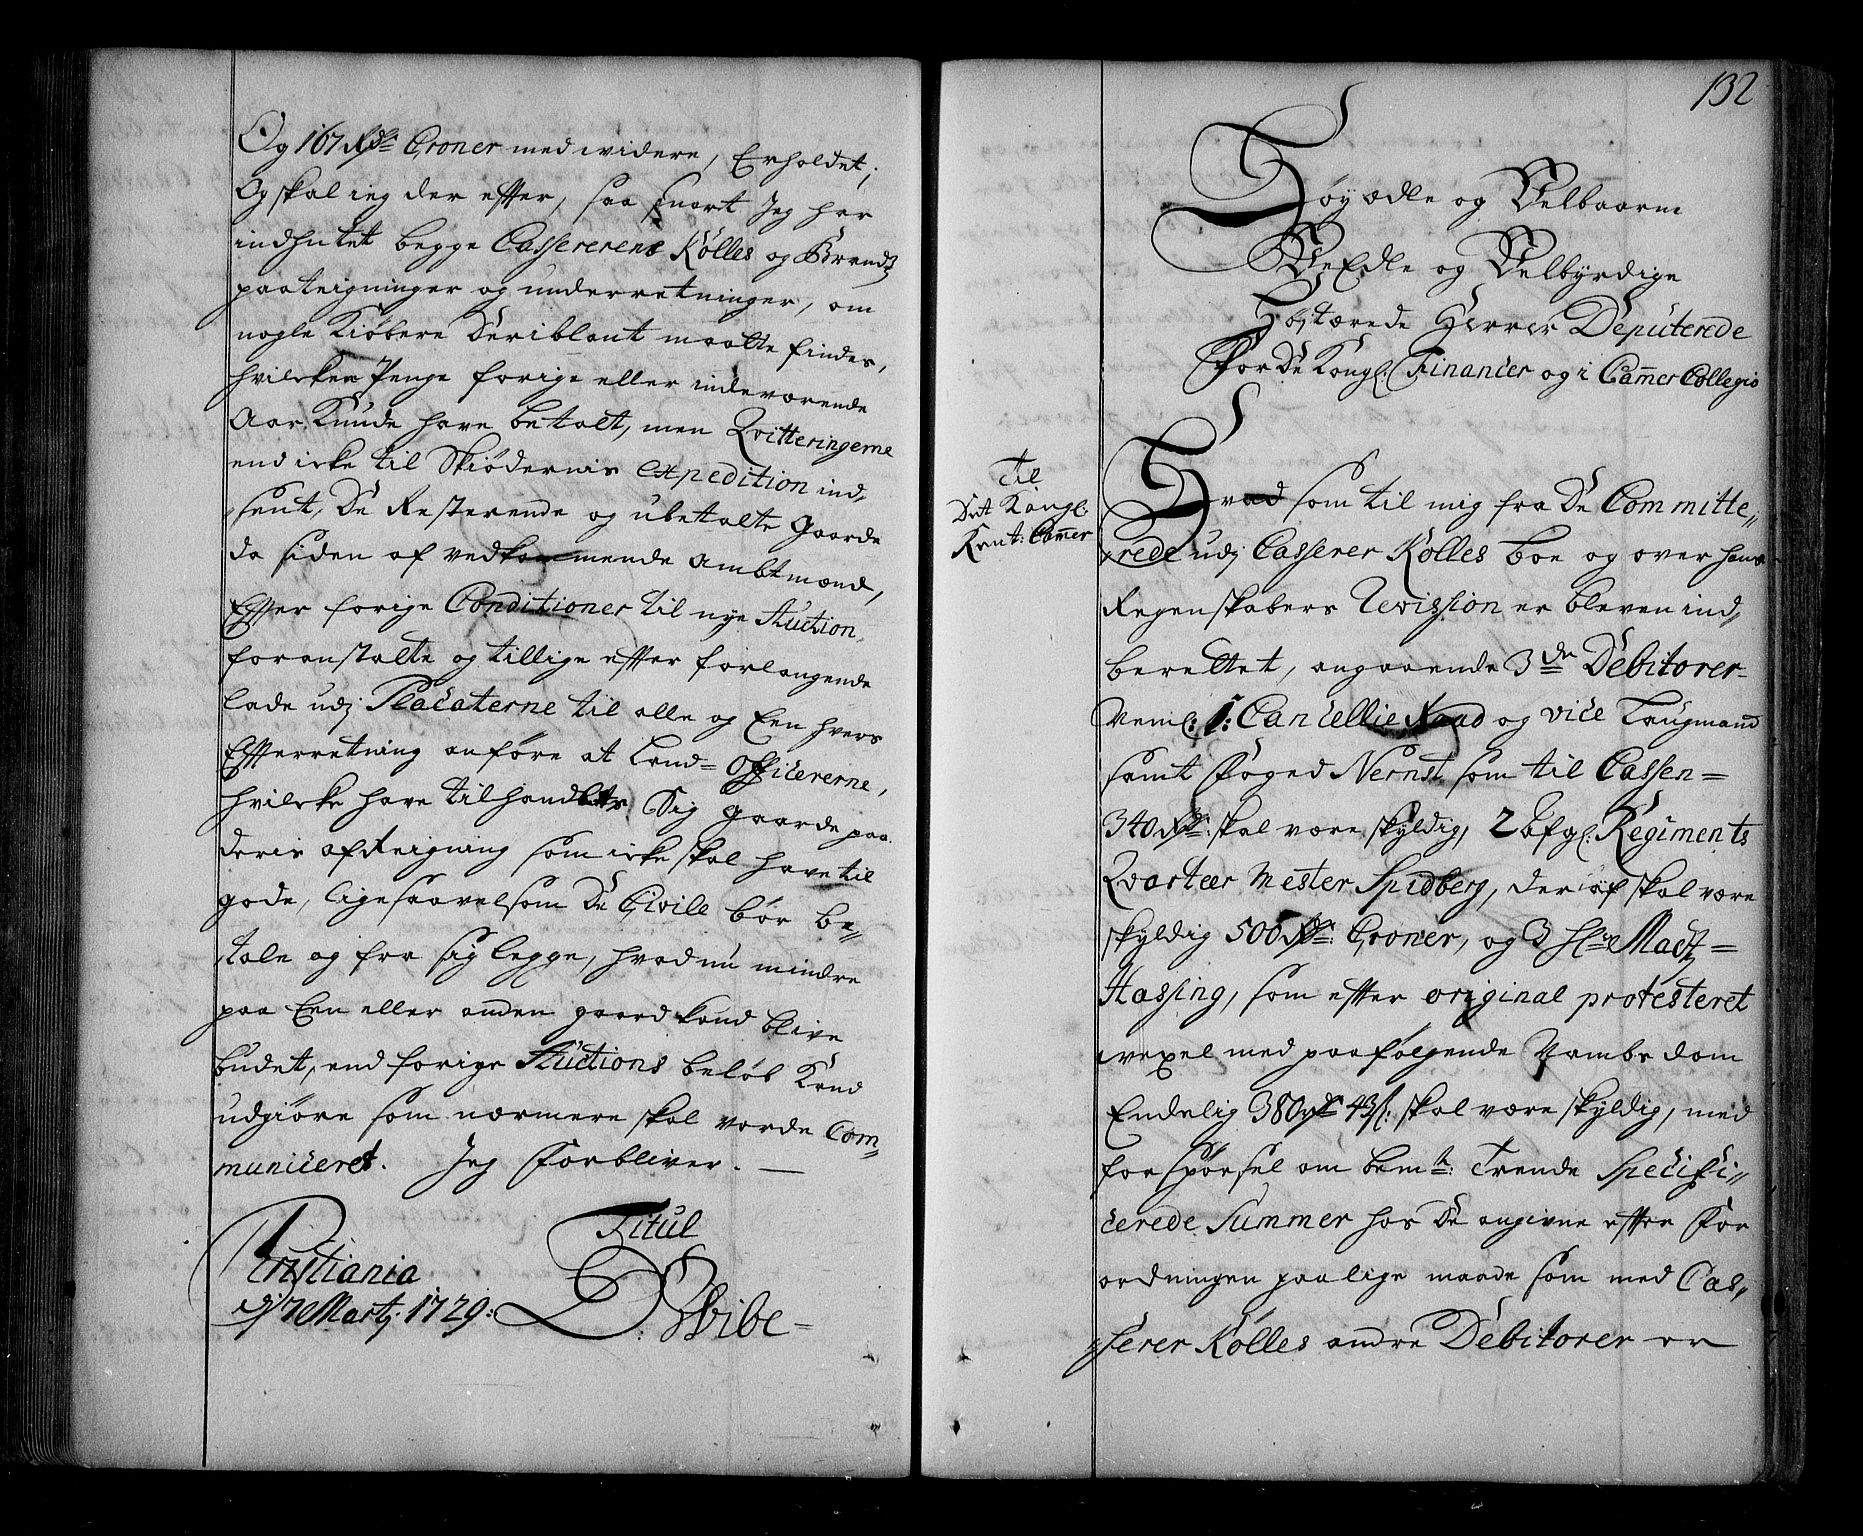 Og 167 Rdr Croner med widere, Erholdet;
Og skal ieg der effter, saa snart Jeg har
indhentet begge Cassererens Kölles og Brandtz
paateigninger og underretninger, om
nogle Kiöbere Deriblant maatte findes,
hvilcken Penge forige eller indeværende
Aar Kunde have betalt, men Qvitteringerne
end icke til Skiödernis expedition ind,,
sent, De Resterende og ubetalte gaarde
da siden af vedkommende Ambtmænd,
Effter forige Conditioner til nye Auction
foranstalte og tillige effter forlangende
lade udj Placaterne til alle og Een hvers
Effterretning anföre at Land= Officererne,
hvilcke have tilhandlet Sig gaarde paa
deris afReigning som icke skal have til
gode, ligesaavelsom De Civile bör be,,
tale og fra sig legge, hvad nu mindre
paa Een eller anden gaard kand blive
budet, end forige Auctions belöb Kand
udgiöre som nærmere skal vorde Com,,
municeret. Jeg Forbliver.
Titul
Cristiania
d 7 Martj. 1729:
D: Wibe=
132
Höyædle og Velbaarne
VelEdle og Velbyrdige
Höjstærede Herrer Deputerede
For De Kongl. Financer og i Cammer Collegio
Til
Det Kongl.
Rent: Cammer
Hvad som til mig fra De Committe,,
rede udj Casserer Kölles boe og over hans
Regenskabers Revission er bleven ind,,
berettet, angaaende 3de Debitorer
Neml: 1: Cancellie Raad og vice Laugmand
samt Foged Nernst som til Cassen=
340 Rdr: skal være skyldig, 2 bfgl. Regiments
Qvarteer Mester Spidberg, der iöf skal være
skyldig 506 Rdr: Croner, og 3 Hr Madtz=
Hassing, som effter original protesteret
wexel med paafölgende Vambs dom
Endelig 380 Rdr 43 s: skal være skyldig, med
forspörsel om bemte: Trende Specifi,,
cerede Summer hos De angivne effter For
ordningen paa lige maade som med Cas,,
serer Kölles andre Debitorer er